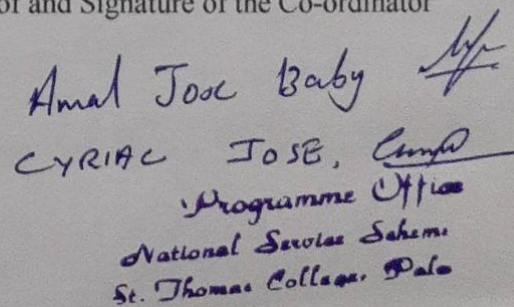 of and Signature of the Co-ordinator
Amal Jose Baby
CYRIAC JOSE,
Programme Office
National Service Scheme
St. Thomas College, Pala